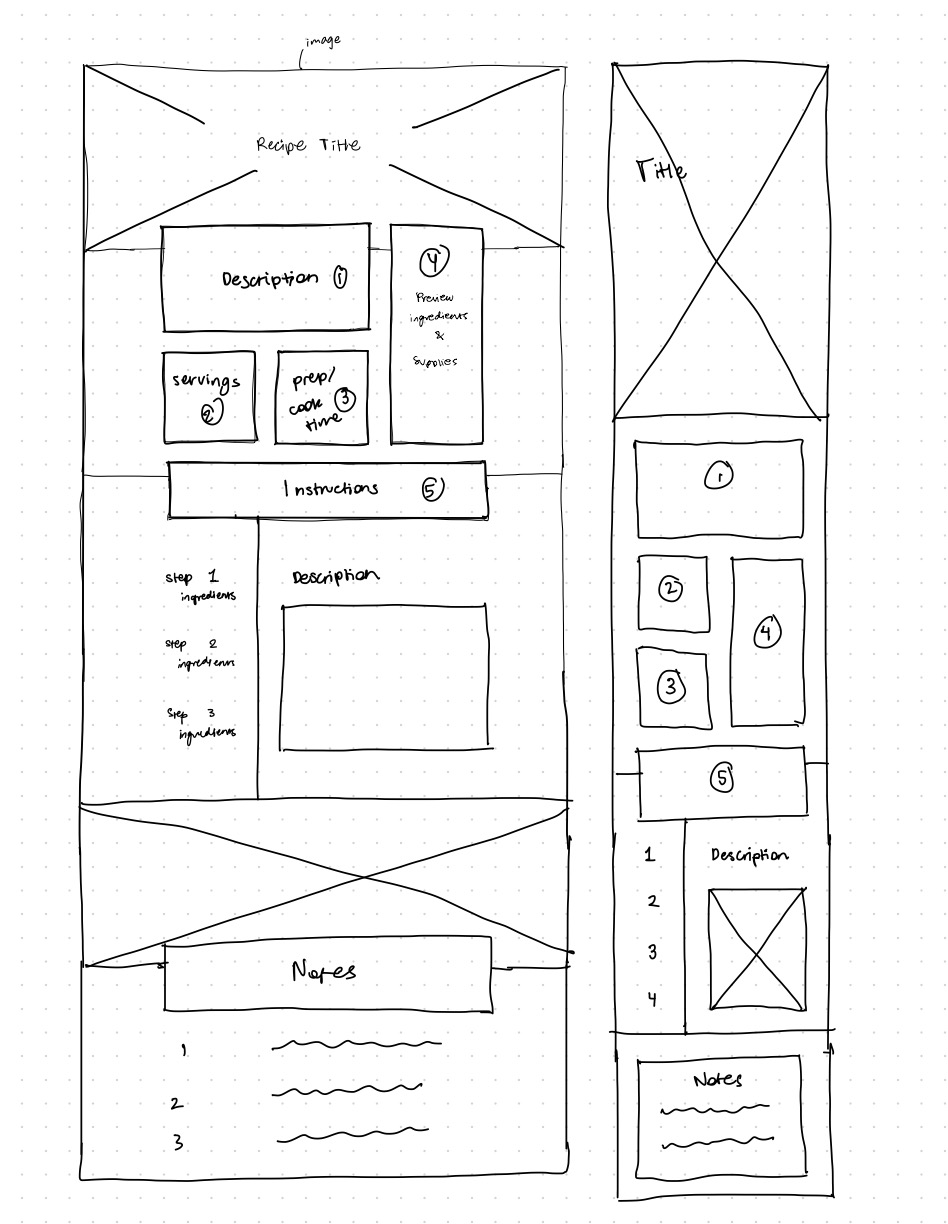 image
Recipe Title
Description 1
4
Preview
ingredients
&
Supplies
servings
2
prep/
cook 3
time
Instructions 5
Step 1
ingredients
Description
Step 2
ingredients
Step 3
ingredients
Notes
1
2
3
Title
1
2
3
4
5
1
Description
2
3
4
Notes